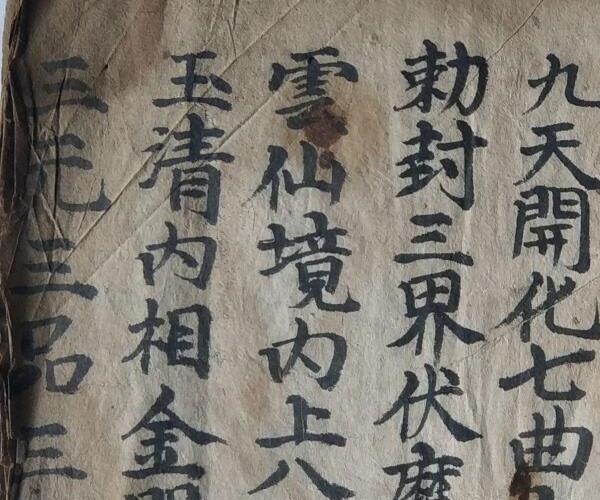 九天開化七曲
勅封三界伏魔
雲仙境内上八
玉清内相金
三元三品三